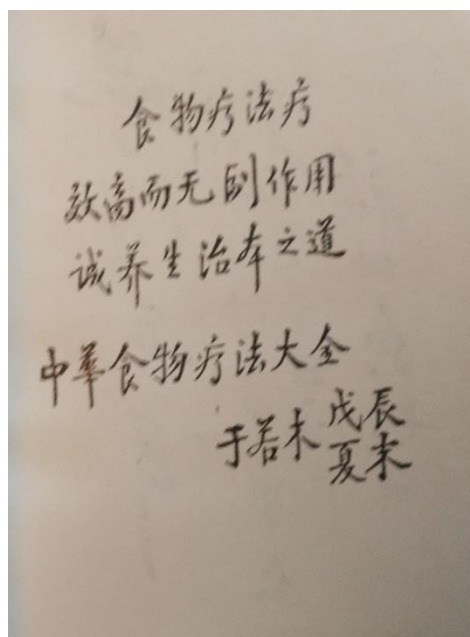 食物疗法疗
效高而无副作用
诚养生治本之道
中華食物疗法大全
于若木 戊辰
夏末